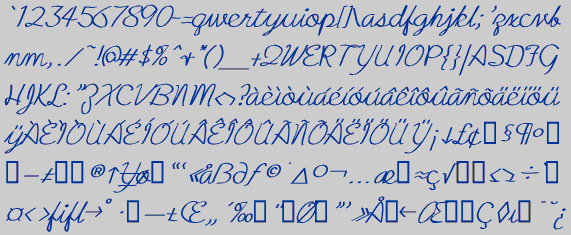 `1234567890-=qwertyuiop[]\asdfghjkl;'zxcvb
nm,./~!@#$%^&*()_+QWERTYUIOP{}|ASDFG
HJKL:"ZXCVBNM<>?àèìòùáéíóúâêîôûãñõäëïöü
ÿÀÈÌÒÙÁÉÍÓÚÂÊÎÔÛÃÑÕÄËÏÖÜŸ¡£¢§¶ºª
–≠®†¥ø“‘«åß∂ƒ©˙∆º¬…æ≈ç√≤≥÷
¤‹›fifl→°·—±Œ„´‰ˇ¨Ø”’»Å←ÆÇ◊ı˜¯˘¿